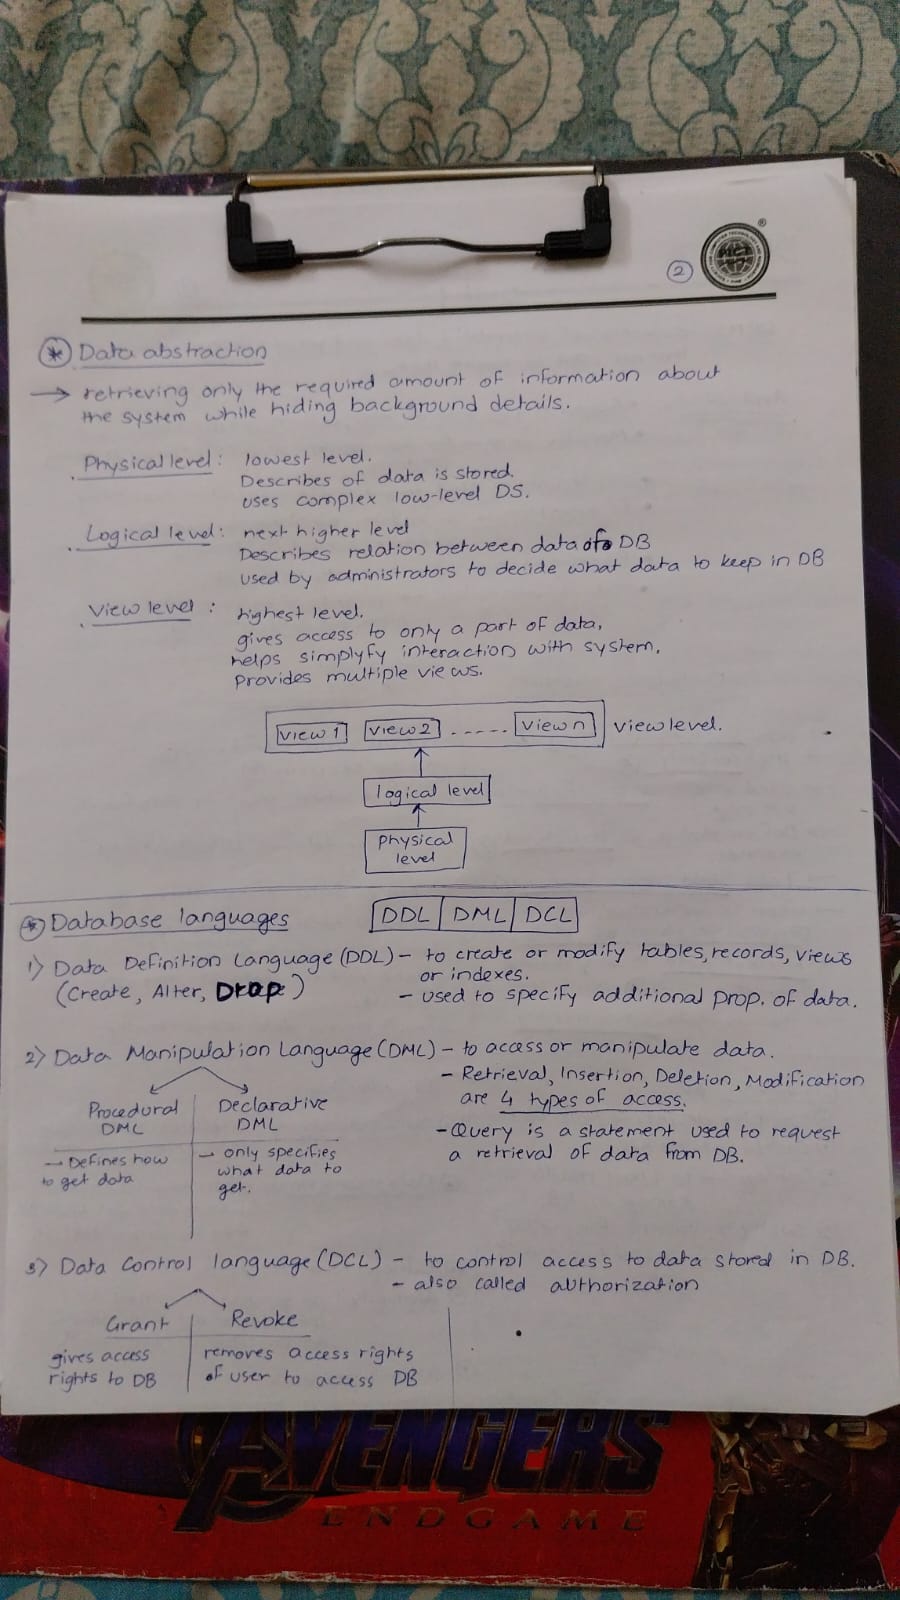 2
PICT
®
* Data abstraction
→ retrieving only the required amount of information about
the system while hiding background details.
Physical level : lowest level.
Describes of data is stored.
uses complex low-level DS.
Logical level : next higher level
Describes relation between data of DB
used by administrators to decide what data to keep in DB
View level : highest level.
gives access to only a part of data,
helps simplyfy interaction with system,
Provides multiple views.
view 1 view 2 ..... view n view level.
logical level
physical
level
* Database languages DDL DML DCL
1) Data Definition Language (DDL) - to create or modify tables, records, views
or indexes.
(Create, Alter, Drop) - used to specify additional prop. of data.
2) Data Manipulation Language (DML) - to access or manipulate data.
- Retrieval, Insertion, Deletion, Modification
are 4 types of access.
- Query is a statement used to request
a retrieval of data from DB.
Procedural
DML
→ Defines how
to get data
Declarative
DML
→ only specifies
what data to
get.
3) Data Control language (DCL) - to control access to data stored in DB.
- also called authorization
Grant
gives access
rights to DB
Revoke
removes access rights
of user to access DB
AVENGERS
ENDGAME